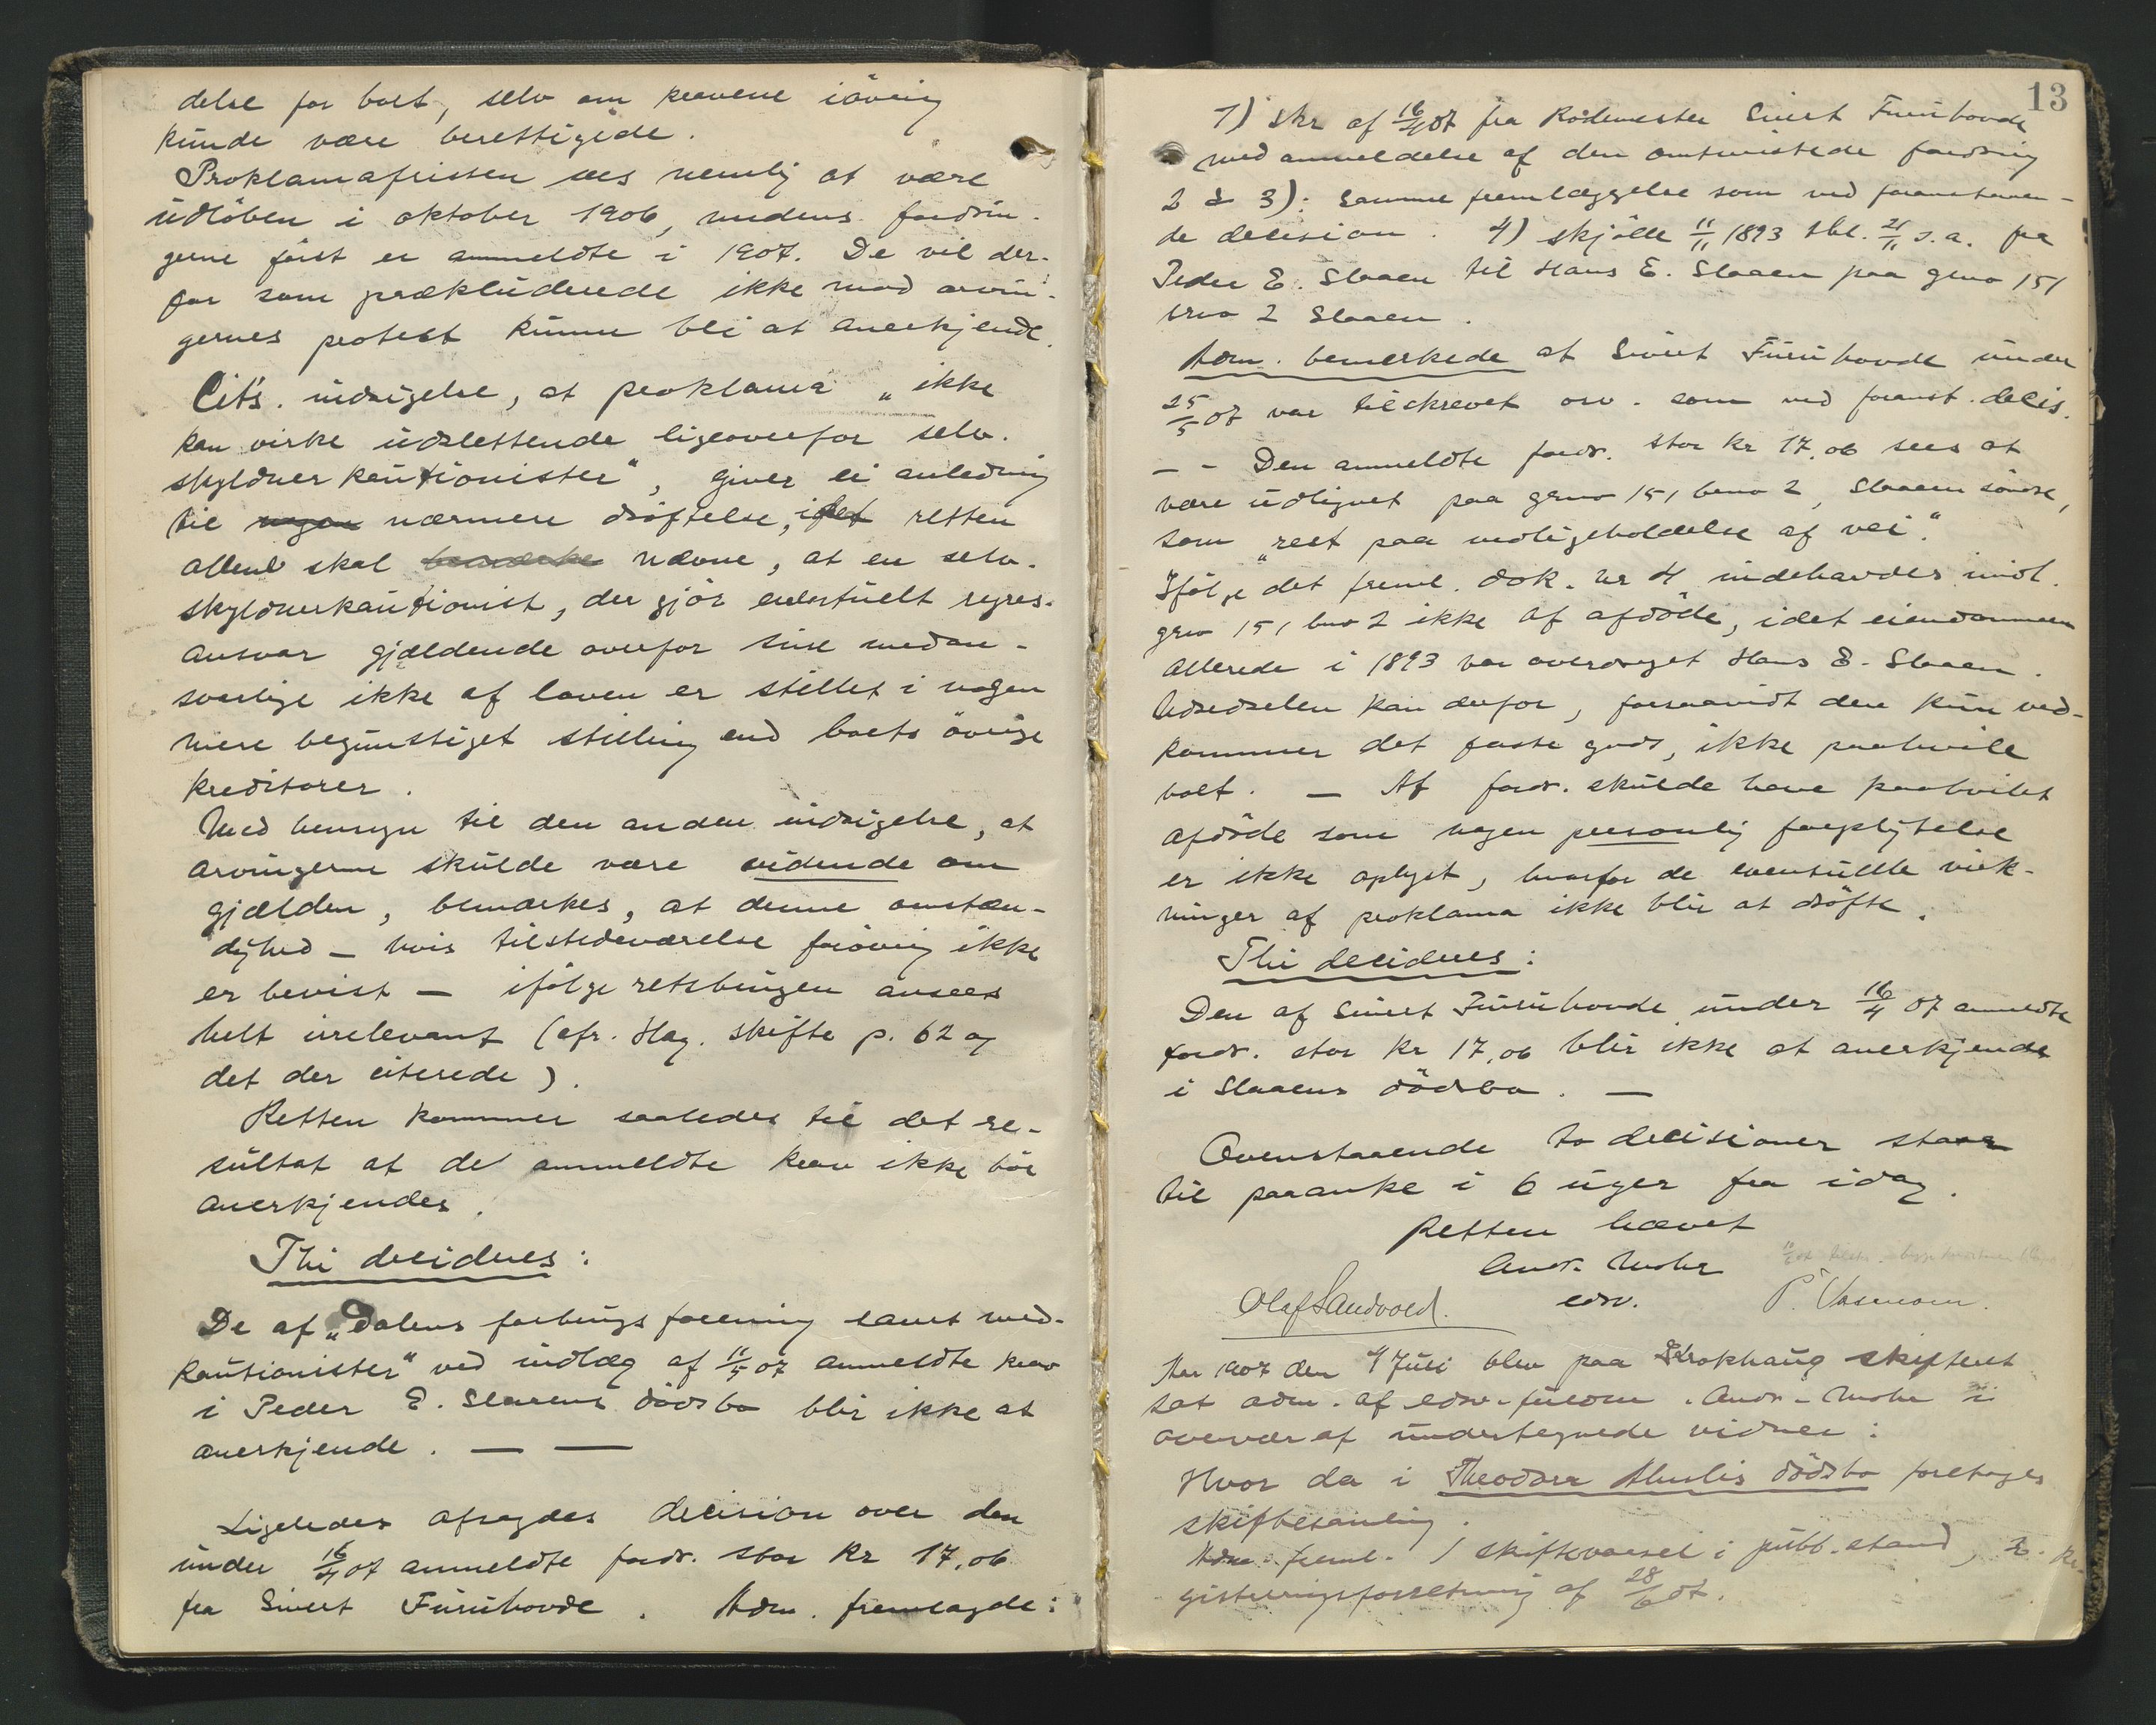 delse for boet, selv om kravene iövrig
kunde være berettigede.
Proklamafristen sees nemlig at være
udlöben i oktober 1906, medens fordrin-
gerne först er anmeldte i 1907. De vil der-
for som prækluderede ikke mod arvin-
gernes protest kunne bli at anerkjende.
Cit's. indsigelse, at proklama „ikke
kan virke udslettende ligeoverfor selv-
skyldnerkautionister", giver ei anledning
til nogen nærmere dröftelse, idet retten
alene skal bemærke nævne, at en selv-
skyldnerkautionist, der gjör eventuelt regres-
ansvar gjældende overfor sine medan-
svarlige ikke af loven er stillet i nogen
mere begunstiget stilling end boets övrige
kreditorer.
Med hensyn til den anden indsigelse, at
arvingerne skulde være vidende om
gjælden, bemærkes, at denne omstæn-
dighed – hvis tilstedeværelse foröving ikke
er bevist – ifölge retsbrugen ansees
helt irrelevant (cfr. Hag. skifte p. 62 og
det der citerede).
Retten kommer saaledes til det re-
sultat at de anmeldte krav ikke bör
anerkjendes.
Thi decideres:
De af „Dalens forbrugsforening samt med-
kautionister" ved indlæg af 11/5 07 anmeldte krav
i Peder E. Slaaens dödsbo blir ikke at
anerkjende. — —
Ligeledes afsagdes decision over den
under 16/4 07 anmeldte fordr. stor kr 17,06
fra Sivert Furuhovde. Adm. fremlagde:
13
1) Skr af 16/4 07 fra Rodemester Sivert Furuhovde
med anmeldelse af den omtvistede fordring
2 & 3): Samme fremlæggelse som ved foranstaaen-
de decision. 4) skjöde 11/11 1893 tbl. 21/11 s.a. fra
Peder E. Slaaen til Hans E. Slaaen paa grno 151
brno 2 Slaaen.
Adm. bemerkede at Sivert Furuhovde under
25/5 07 var tilskrevet osv. som ved foranst. decis.
– – Den anmeldte fordr. stor kr 17,06 sees at
være udlignet paa grno 151 brno 2, Slaaen söndre,
som „rest paa vedligeholdelse af vei".
Ifölge det freml. dok. nr 4 indehavdes imidl.
grno 151 bno 2 ikke af afdöde, idet eiendommen
allerede i 1893 var overdraget Hans E. Slaaen.
Udredselen kan derfor, forsaavidt den kun ved-
kommer det faste gods, ikke paahvile
boet. — At fordr. skulde have paahvilet
afdöde som nogen personlig forpligtelse
er ikke oplyst, hvorfor de eventuelle virk-
ninger af proklama ikke blir at dröfte.
Thi decideres:
Den af Sivert Furuhovde under 16/4 07 anmeldte
fordr. stor kr 17,06 blir ikke at anerkjende
i Slaaens dödsbo. —
Ovenstaaende to decisioner staar
til paaanke i 6 uger fra idag.
Retten hævet
Andr. Mohr
edsv.
Olaf Sandvold.
Aar 1907 den 4 Juli blev paa Krokhaug skifteret
sat adm. af edsv. fuldm. Andr. Mohr i
overvær af undertegnede vidner:
Hvor da i Theodora dödsbo foretages
skiftesamling.
Adm. freml. 1 skiftevarsel i publ. stand, 2. re-
gistreringsforretning af 28/6 07.